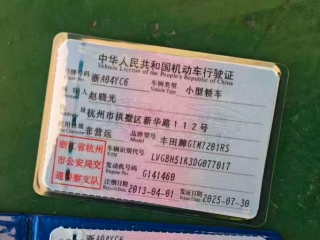 中华人民共和国机动车行驶证
Vehicle License of the People's Republic of China
号牌号码 浙A04YC6 车辆类型 Vehicle Type 小型轿车
赵晓光
杭州市拱墅区新华路112号
非营运 品牌型号 丰田牌GTM7201RS
浙江省杭州市公安局交通警察支队
车辆识别代号 VIN LVGBH51K3DG077017
发动机号码 Engine No. G141460
注册日期 2013-04-01 发证日期 2025-07-30